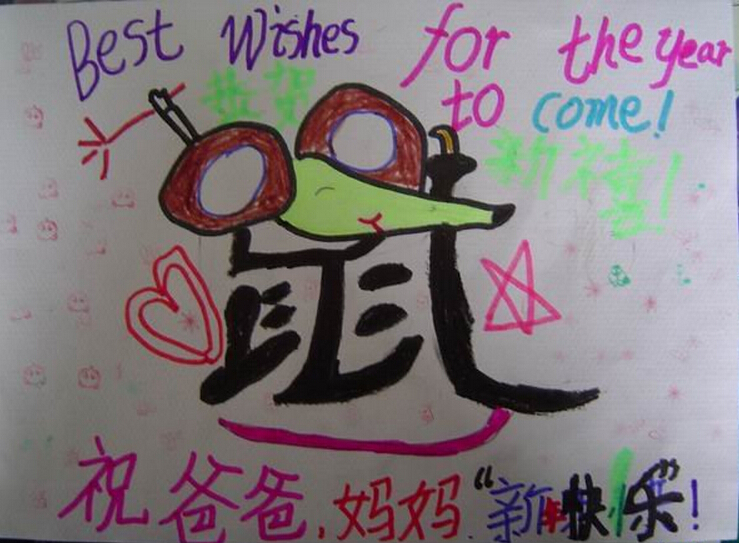 Best Wishes for the year
to come!
恭贺
新禧!
鼠
祝爸爸,妈妈“新年快乐”!